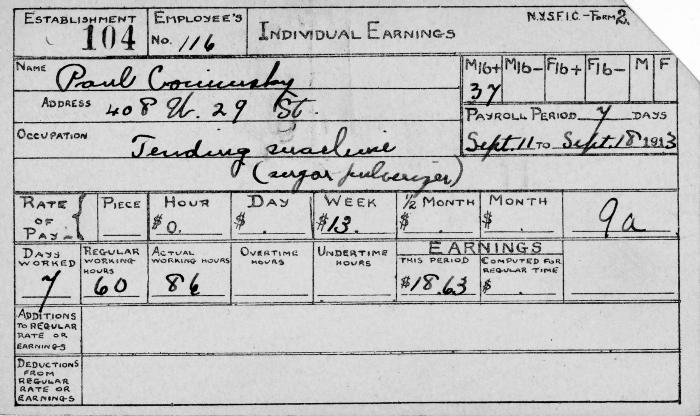 ESTABLISHMENT 104
EMPLOYEE'S No. 116
INDIVIDUAL EARNINGS
N.Y.S.F.I.C.-FORM 2.
NAME Paul
ADDRESS 408 W. 29 St.
OCCUPATION Tending machine
(sugar pulverizer)
M16+ M16- F16+ F16- M F
37
PAYROLL PERIOD 7 DAYS
Sept. 11 TO Sept. 18 1913
RATE OF PAY- PIECE HOUR $0. DAY $ . WEEK $13. 1/2 MONTH $ . MONTH $ . 9a
DAYS WORKED 7
REGULAR WORKING HOURS 60
ACTUAL WORKING HOURS 86
OVERTIME HOURS
UNDERTIME HOURS
EARNINGS
THIS PERIOD $18.63
COMPUTED FOR REGULAR TIME $ .
ADDITIONS TO REGULAR RATE OR EARNINGS
DEDUCTIONS FROM REGULAR RATE OR EARNINGS